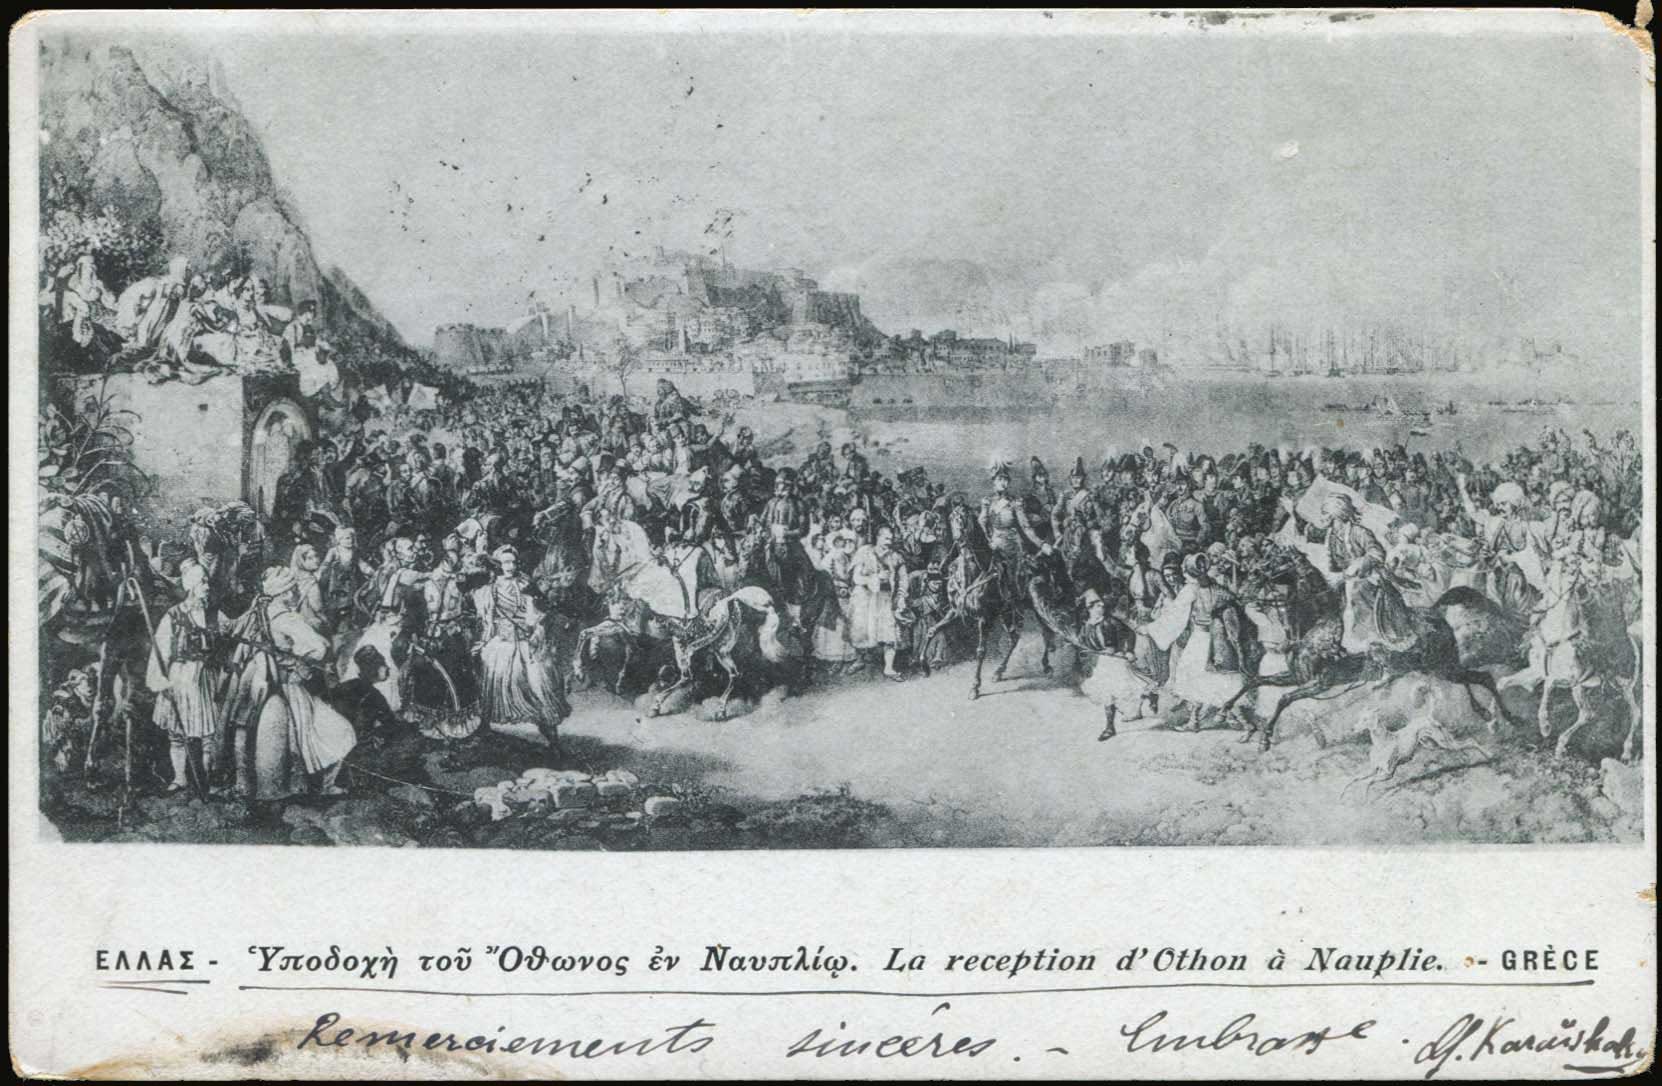 ΕΛΛΑΣ - Ὑποδοχὴ τοῦ Ὄθωνος ἐν Ναυπλίῳ. La reception d'Othon à Nauplie. - GRÈCE
Remerciements sincères. - Embrasse.